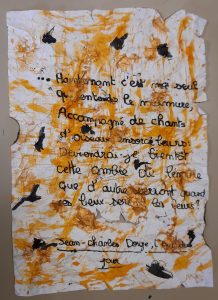 ... Maintenant c'est moi seul
qui entends le murmure,
Accompagné de chants
d'oiseaux ensorceleurs.
Deviendrai-je bientôt
cette ombre de
que d'autres verront quand
ces lieux seront les leurs?
Jean-Charles Dorge,
jour